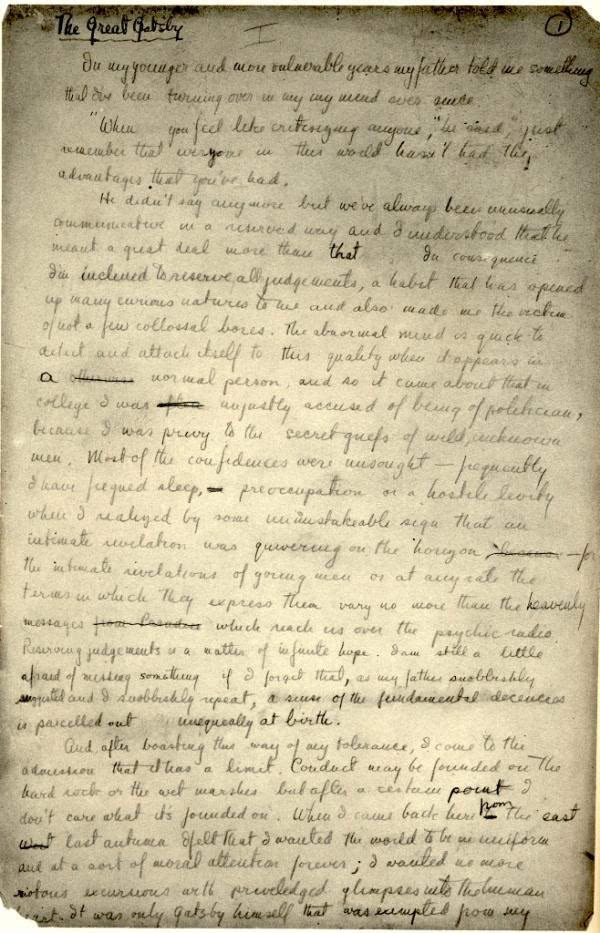 The Great Gatsby
I
1
In my younger and more vulnerable years my father told me something
that I've been turning over in my my mind ever since.
"When you feel like critisizing anyone," he said, "just
remember that everyone in this world hasn't had the
advantages that you've had.
He didn't say anymore but we've always been unusually
communicative in a reserved way and I understood that he
meant a great deal more than that In consequence
I'm inclined to reserve all judgements, a habit that has opened
up many curious natures to me and also made me the victim
of not a few collossal bores. The abnormal mind is quick to
detect and attach itself to this quality when it appears in
a otherwise normal person, and so it came about that in
college I was unjustly accused of being of politician,
because I was privy to the secret griefs of wild, unknown
men. Most of the confidences were unsought — frequently
I have feigned sleep, preoccupation or a hostile levity
when I realized by some unmistakeable sign that an
intimate revelation was quivering on the horizon — for
the intimate revelations of young men or at any rate the
terms in which they express them vary no more than the heavenly
messages from Paradise which reach us over the psychic radio.
Reserving judgements is a matter of infinite hope. I am still a little
afraid of missing something if I forget that, as my father snobbishly
suggested and I snobbishly repeat, a sense of the fundamental decencies
is parcelled out unequally at birth.
And after boasting this way of my tolerance, I come to the
admission that it has a limit. Conduct may be founded on the
hard rock or the wet marshes but after a certain point I
don't care what it's founded on. When I came back here from the east
last autumn I felt that I wanted the world to be in uniform
and at a sort of moral attention forever; I wanted no more
riotous excursions with priviledged glimpses into the human
heart. It was only Gatsby himself that was exempted from my